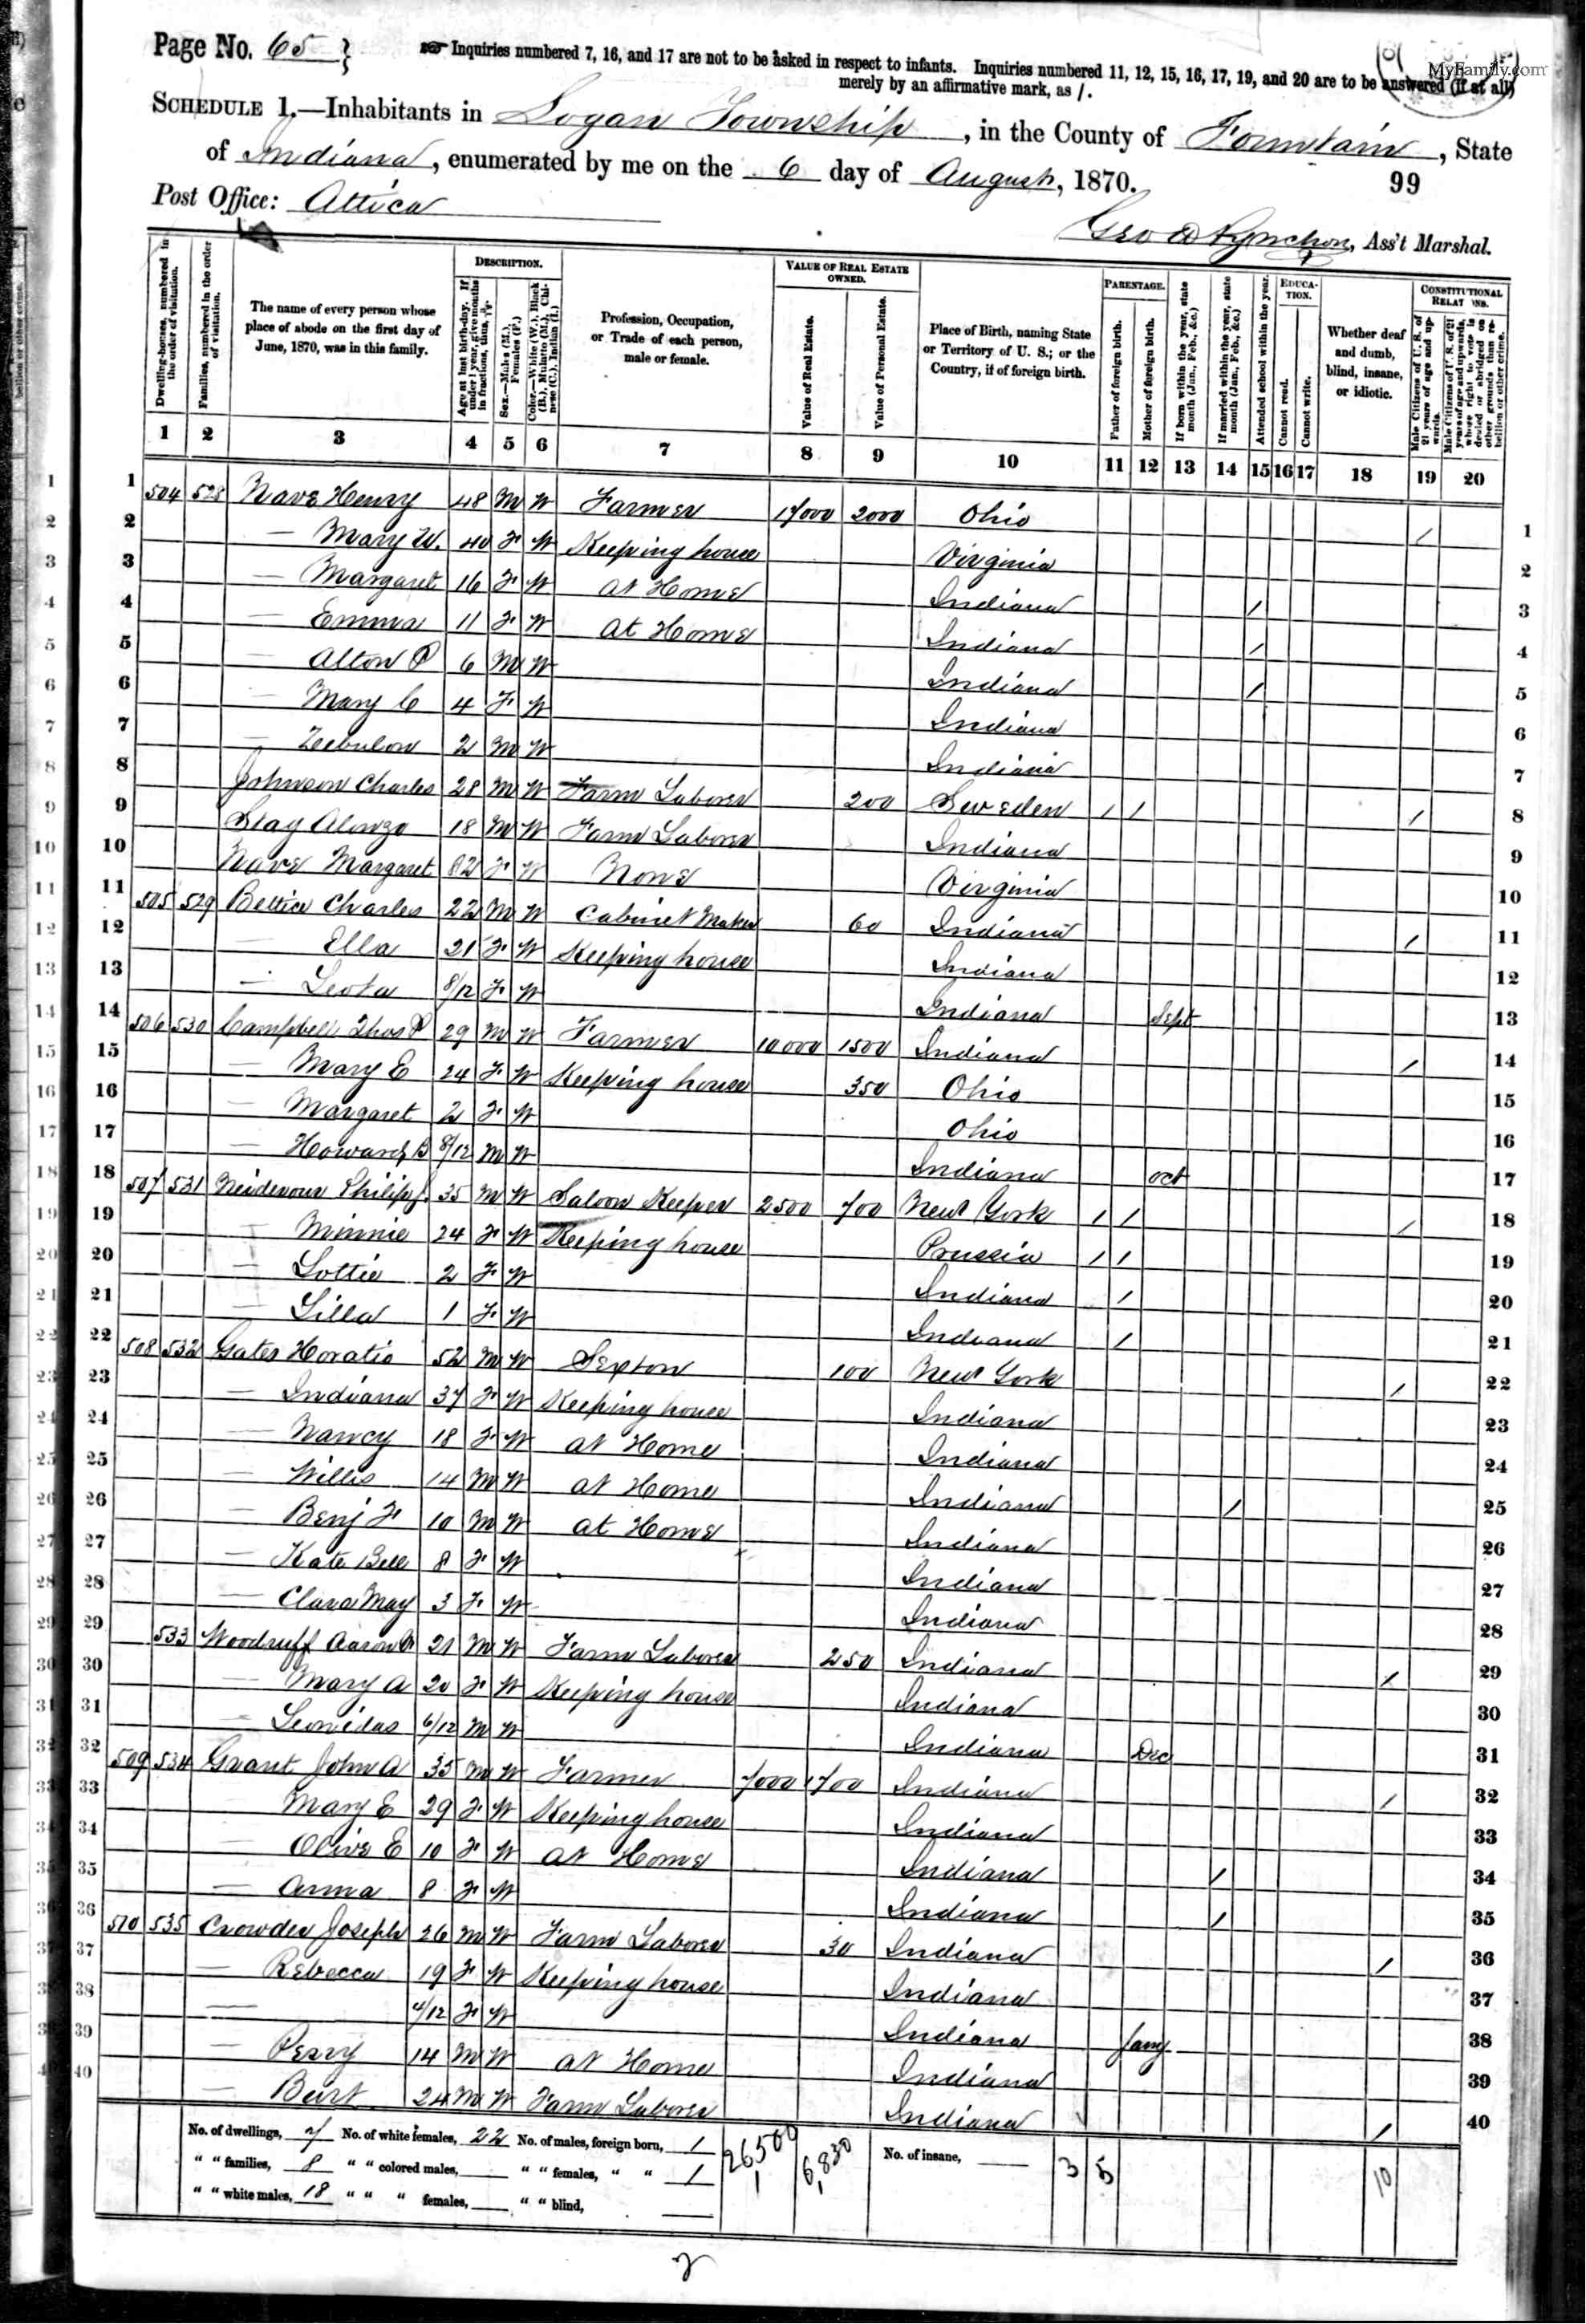 Page No. 65 }
Inquiries numbered 7, 16, and 17 are not to be asked in respect to infants. Inquiries numbered 11, 12, 15, 16, 17, 19, and 20 are to be answered (if at all)
merely by an affirmative mark, as /.
MyFamily.com
SCHEDULE 1.—Inhabitants in Logan Township, in the County of Fountain, State
of Indiana, enumerated by me on the 6 day of August, 1870.
99
Post Office: Attica
Ass't Marshal.
Dwelling-houses, numbered in the order of visitation.
Families, numbered in the order of visitation.
The name of every person whose place of abode on the first day of June, 1870, was in this family.
DESCRIPTION.
Age at last birth-day. If under 1 year, give months in fractions, thus,
Sex.—Males (M.), Females (F.)
Color.—White (W.), Black (B.), Mulatto (M.), Chinese (C.), Indian (I.)
Profession, Occupation, or Trade of each person, male or female.
VALUE OF REAL ESTATE OWNED.
Value of Real Estate.
Value of Personal Estate.
Place of Birth, naming State or Territory of U. S.; or the Country, if of foreign birth.
PARENTAGE.
Father of foreign birth.
Mother of foreign birth.
If born within the year, state month (Jan., Feb., &c.)
If married within the year, state month (Jan., Feb., &c.)
Attended school within the year.
EDUCATION.
Cannot read.
Cannot write.
Whether deaf and dumb, blind, insane, or idiotic.
CONSTITUTIONAL RELATIONS.
Male Citizens of U. S. of 21 years of age and upwards.
Male Citizens of U. S. of 21 years of age and upwards, whose right to vote is denied or abridged on other grounds than rebellion or other crime.
1 2 3 4 5 6 7 8 9 10 11 12 13 14 15 16 17 18 19 20
1 504 528 Nave Henry 48 M W Farmer 17000 2000 Ohio / 1
2 — Mary W. 40 F W Keeping house Virginia 2
3 — Margaret 16 F W At Home Indiana / 3
4 — Emma 11 F W At Home Indiana / 4
5 — Alton P 6 M W Indiana / 5
6 — Mary C 4 F W Indiana 6
7 — Zebulon 2 M W Indiana 7
8 Johnson Charles 28 M W Farm Laborer 200 Sweden / / / 8
9 Slag Alonzo 18 M W Farm Laborer Indiana 9
10 Nave Margaret 82 F W None Virginia 10
11 505 529 Charles 22 M W Cabinet Maker 60 Indiana / 11
12 — Ella 21 F W Keeping house Indiana 12
13 — Leota 8/12 F W Indiana Sept 13
14 506 530 Campbell Thos P 29 M W Farmer 10000 1500 Indiana / 14
15 — Mary E 24 F W Keeping house 350 Ohio 15
16 — Margaret 2 F W Ohio 16
17 — Howard B 8/12 M W Indiana Oct 17
18 507 531 Philip J. 35 M W Saloon Keeper 2500 700 New York / / / 18
19 — Minnie 24 F W Keeping house Prussia / / 19
20 — Lottie 2 F W Indiana / 20
21 — Lilla 1 F W Indiana / 21
22 508 532 Gates Horatio 52 M W Sexton 100 New York / 22
23 — Indiana 37 F W Keeping house Indiana 23
24 — Nancy 18 F W At Home Indiana 24
25 — Willis 14 M W At Home Indiana / 25
26 — Benj F 10 M W At Home Indiana 26
27 — Kate Bell 8 F W Indiana 27
28 — Clara May 3 F W Indiana 28
29 533 Woodruff Aaron 21 M W Farm Laborer 250 Indiana / 29
30 — Mary A 20 F W Keeping house Indiana 30
31 — Leonidas 6/12 M W Indiana Dec 31
32 509 534 Grant John A 35 M W Farmer 7000 1700 Indiana / 32
33 — Mary E 29 F W Keeping house Indiana 33
34 — Olive E 10 F W At Home Indiana / 34
35 — Anna 8 F W Indiana / 35
36 510 535 Crowder Joseph 26 M W Farm Laborer 30 Indiana / 36
37 — Rebecca 19 F W Keeping house Indiana 37
38 — 4/12 F W Indiana Jany 38
39 — Perry 14 M W At Home Indiana 39
40 — Burt 24 M W Farm Laborer Indiana / 40
No. of dwellings, 7 No. of white females, 22 No. of males, foreign born, 1 26500 6,830 No. of insane, 3 5 10
" " families, 8 " " colored males, " " females, " " 1
" " white males, 18 " " " females, " " blind,
2